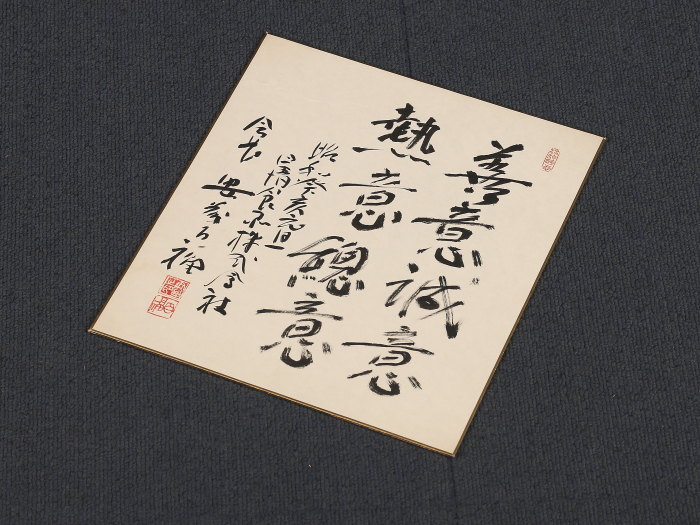 善意誠意
熱意創意
昭和癸亥六月一日
日清食品株式会社
会長 安藤百福